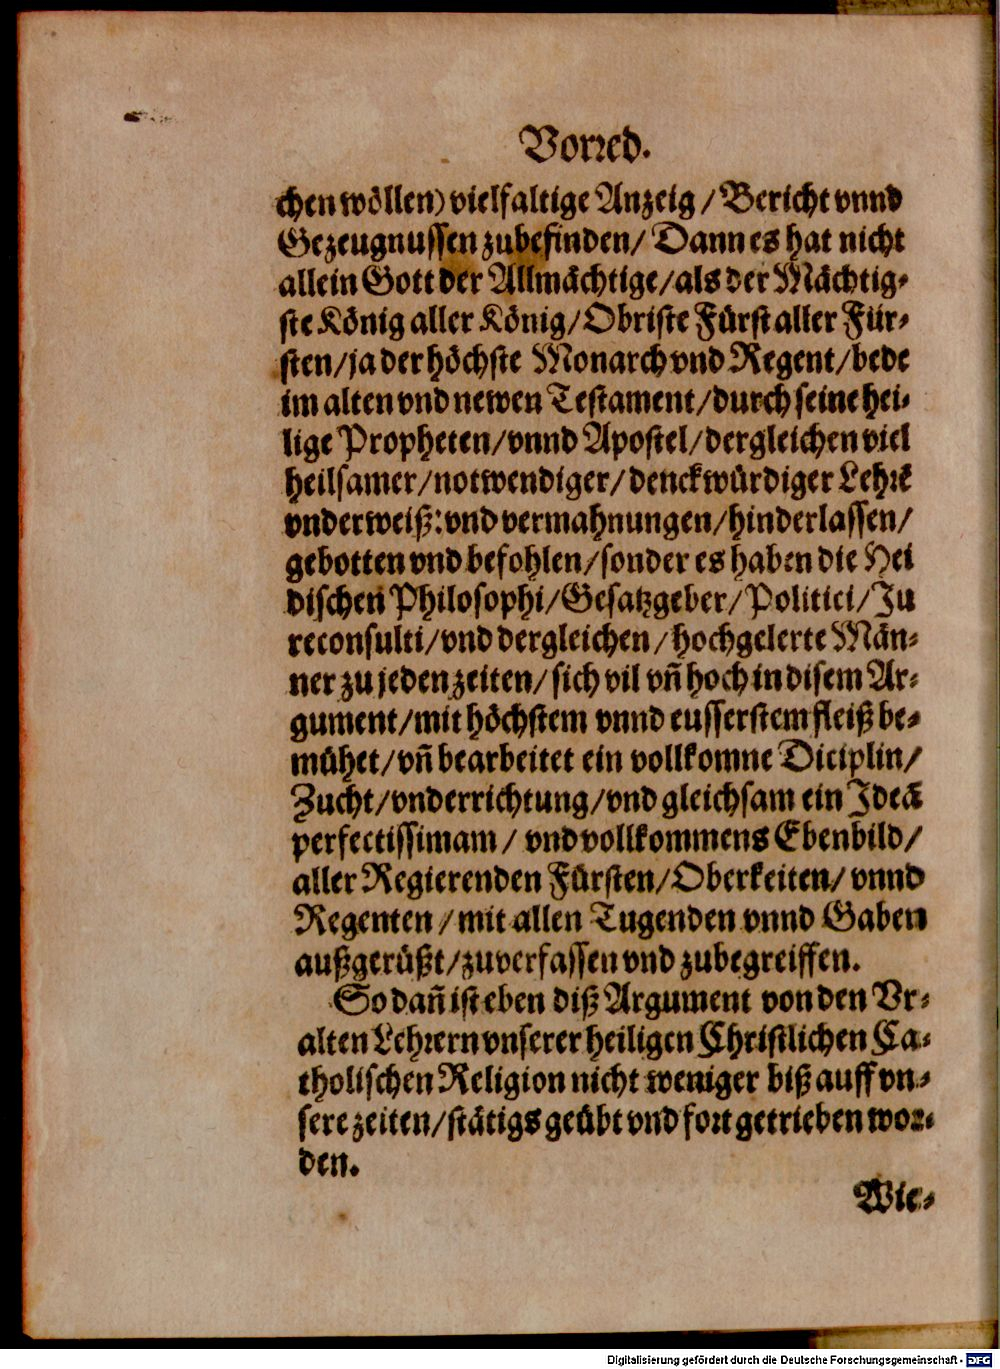 Vorred.
chen wöllen) vielfaltige Anzeig / Bericht vnnd
Gezeugnussen zubefinden / Dann es hat nicht
allein Gott der Allmächtige / als der Mächtig⸗
ste König aller König / Obriste Fürst aller Für⸗
sten / ja der höchste Monarch vnd Regent / bede
im alten vnd newen Testament / durch seine hei⸗
lige Propheten / vnnd Apostel / dergleichen viel
heilsamer / notwendiger / denckwürdiger Lehrē
vnderweiß: vnd vermahnungen / hinderlassen /
gebotten vnd befohlen / sonder es haben die Hei
dischen Philosophi / Gesatzgeber / Politici / Ju
reconsulti / vnd dergleichen / hochgelerte Män⸗
ner zu jeden zeiten / sich vil vñ hoch in disem Ar⸗
gument / mit höchstem vnnd eusserstem fleiß be⸗
mühet / vñ bearbeitet ein vollkomne Diciplin /
Zucht / vnderrichtung / vnd gleichsam ein Ideã
perfectissimam / vnd vollkommens Ebenbild /
aller Regierenden Fürsten / Oberkeiten / vnnd
Regenten / mit allen Tugenden vnnd Gaben
außgerüßt / zuverfassen vnd zubegreiffen.
So dañ ist eben diß Argument von den Vr⸗
alten Lehrern vnserer heiligen Christlichen Ca⸗
tholischen Religion nicht weniger biß auff vn⸗
sere zeiten / stätigs geübt vnd fort getrieben wor⸗
den.
Wie⸗
Digitalisierung gefördert durch die Deutsche Forschungsgemeinschaft - DFG